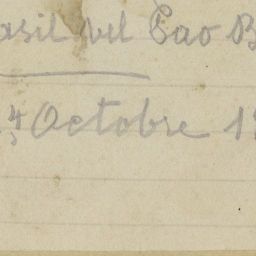 asil del Pao B
4 Octobre 1